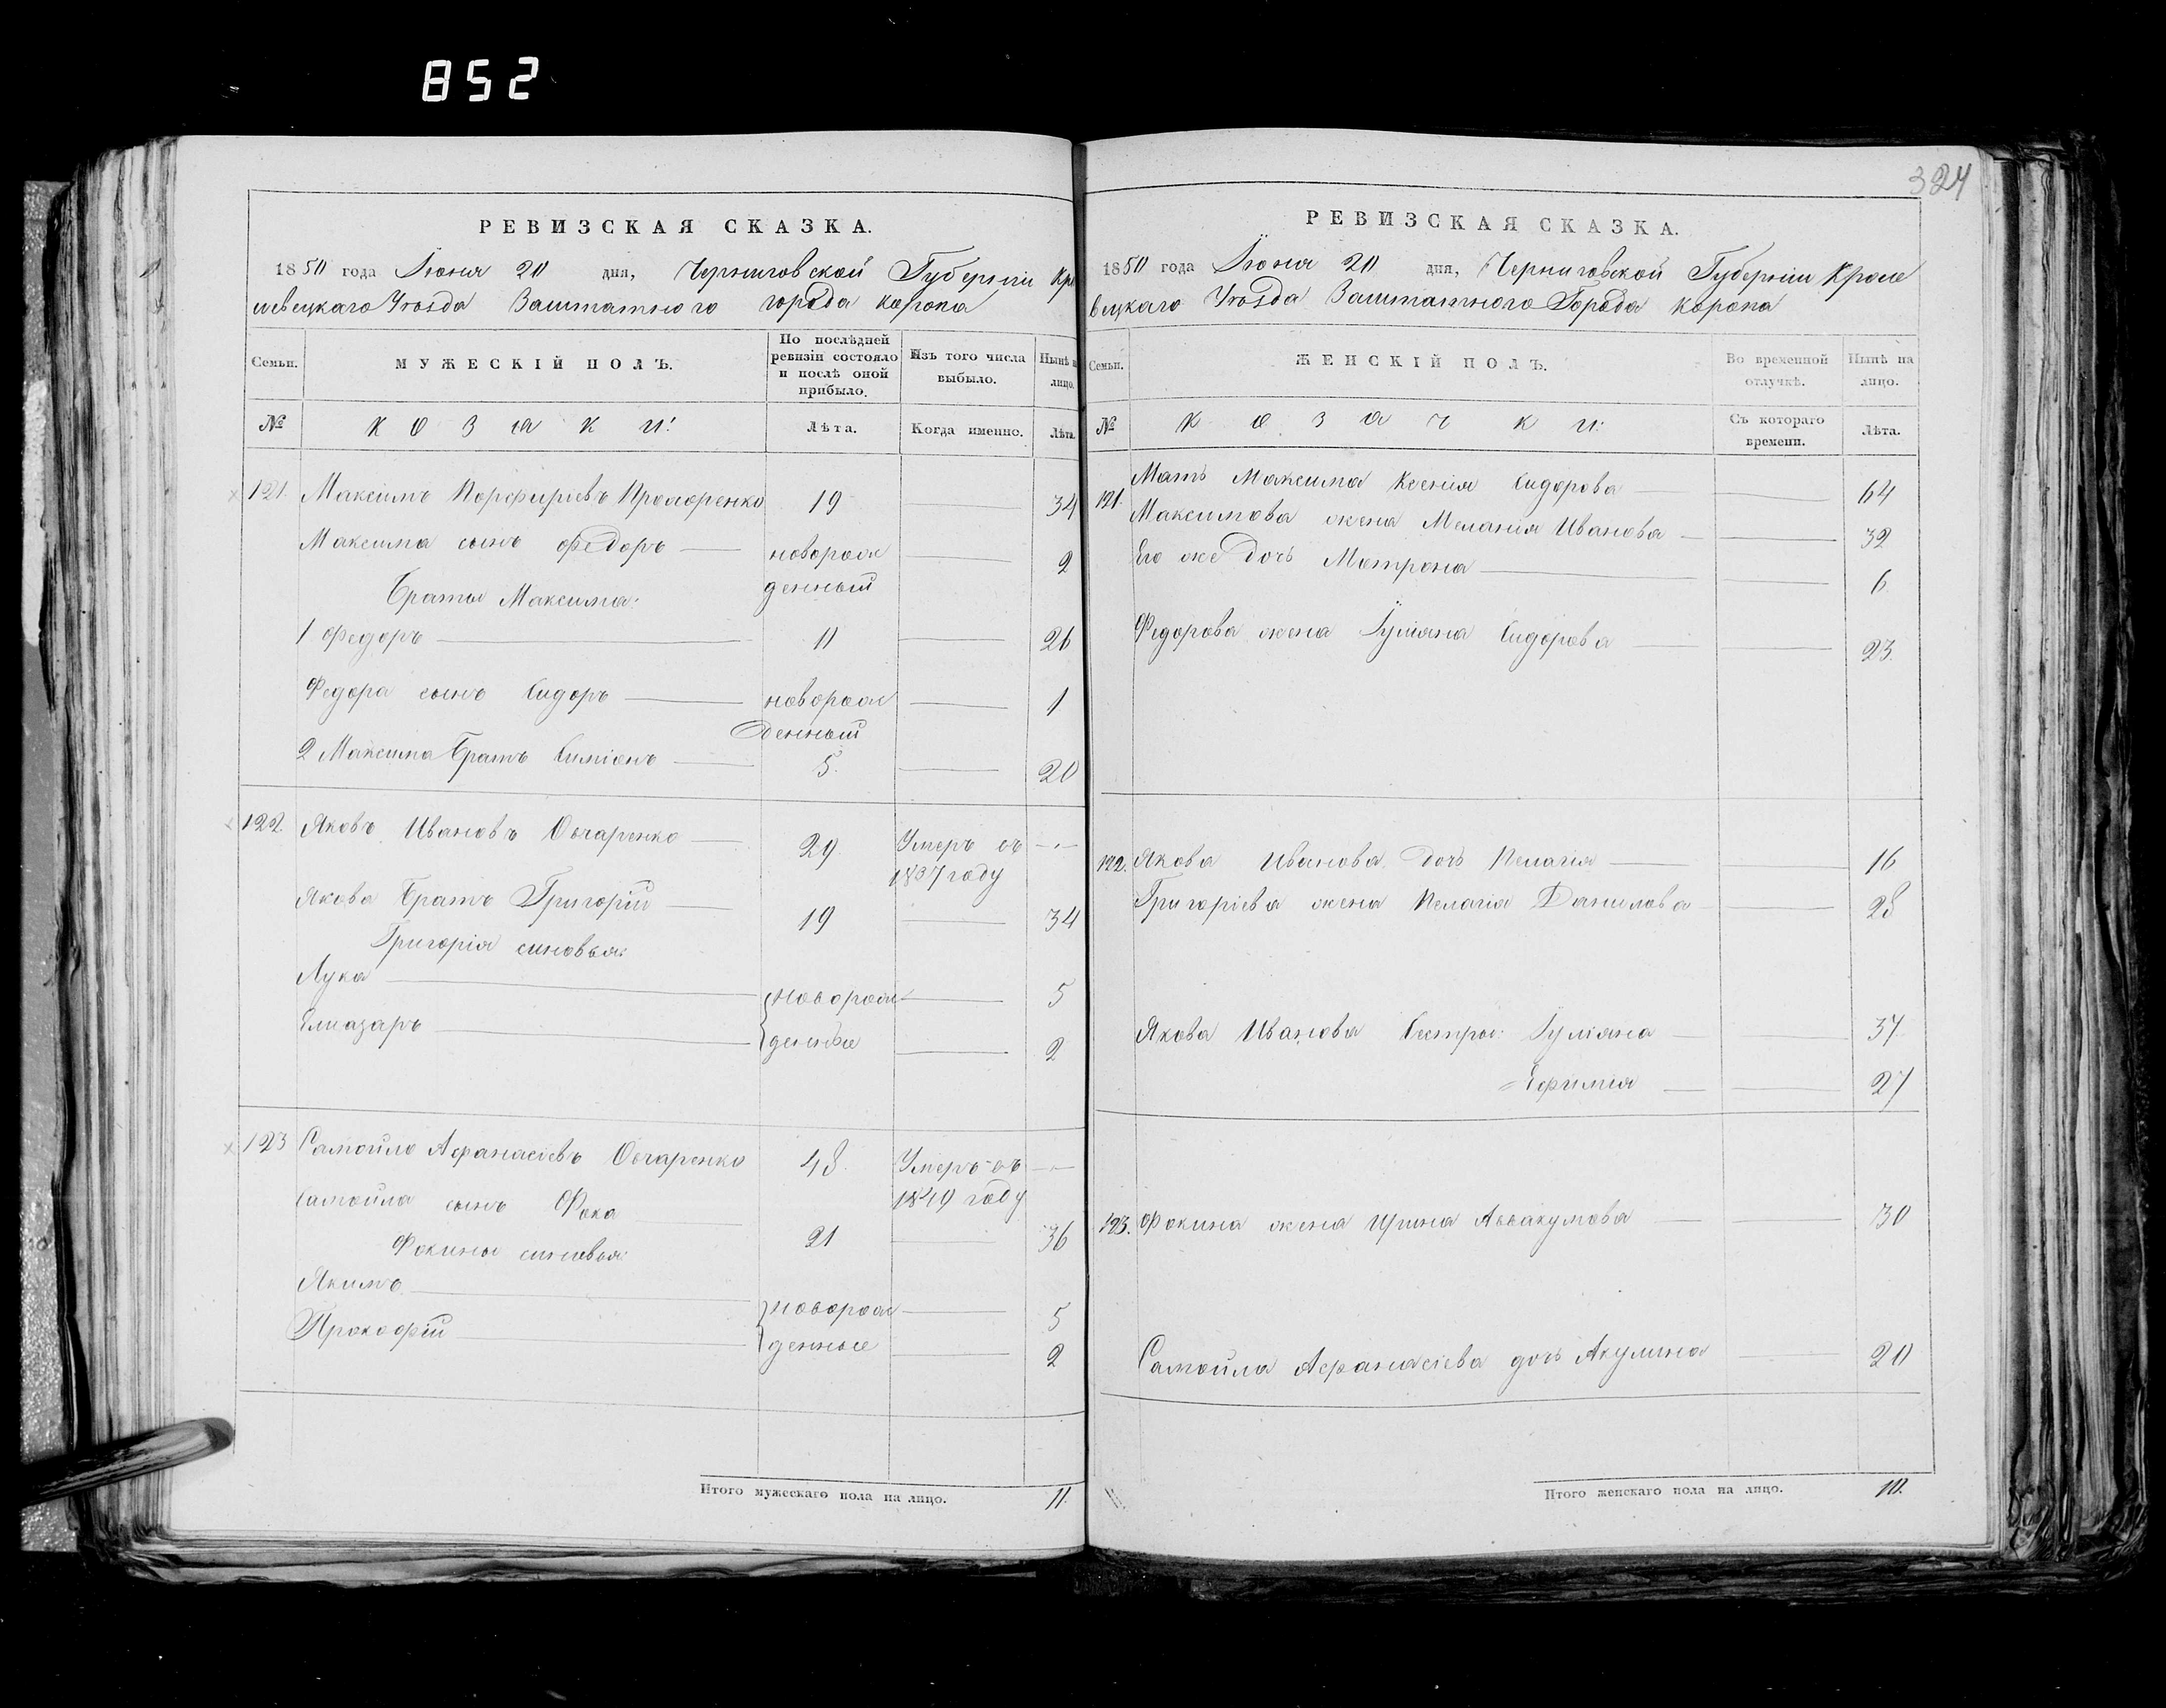 852
324
РЕВИЗСКАЯ СКАЗКА.
1850 года Іюня 20 дня, Черниговской Губерніи Кро
левецкаго Уѣзда Заштатного города Коропа
Семьи. МУЖЕСКІЙ ПОЛЪ. По послѣдней ревизіи состояло и послѣ оной прибыло. Изъ того числа выбыло. Нынѣ на лицо.
№ Козаки: Лѣта. Когда именно. Лѣта.
121. Максимъ Порфиріевъ 19 34
Максима сынъ Федоръ новорож 2
Браты Максима: денный
1 Федоръ 11 26
Федора сынъ Сидоръ новорож 1
денный
2 Максима Братъ Симіонъ 5. 20
122. Яковъ Ивановъ Овчаренко 29 Умеръ въ
1837 году
Якова Братъ Григорій 19 34
Григорія синовья:
Лука новорож 5
Елиазаръ денные 2
123 Самойло Афанасіевъ Овчаренко 48. Умеръ въ
1849 году
Самойла сынъ Фока 21 36
Фокины синовья:
Якимъ новорож 5
Прокофій денные 2
Итого мужескаго пола на лицо. 11.
РЕВИЗСКАЯ СКАЗКА.
1850 года Іюня 20 дня, Черниговской Губерніи Кроле
вецкаго Уѣзда Заштатного Города Коропа
Семьи. ЖЕНСКІЙ ПОЛЪ. Во временной отлучкѣ. Нынѣ на лицо.
№ Козачки: Съ котораго времени. Лѣта.
121. Мать Максима Ксенія Сидорова 64
Максимова жена Меланія Иванова 32
Его же дочь Мотрона 6
Федорова жена Гуліяна Сидорова 23.
122. Якова Иванова дочь Пелагія 16
Григоріева жена Пелагія Данилова 28
Якова Иванова Сестры: Гуліяна 37
Ефимія 27
123. Фокина жена Ирина Аввакумова 30
Самойла Афанасіева дочь Акулина 20
Итого женскаго пола на лицо. 10.